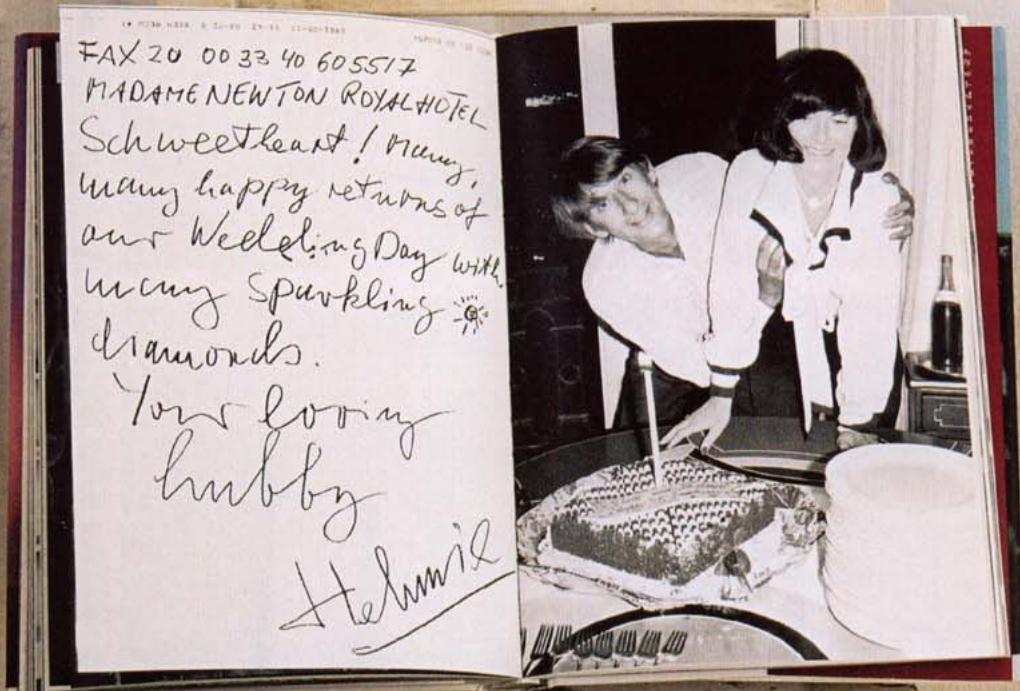 FAX 20 00 33 40 605517
MADAME NEWTON ROYAL HOTEL
Schweetheart! Many,
many happy returns of
our Wedding Day with
many Sparkling
diamonds.
Your loving
hubby
Helmie